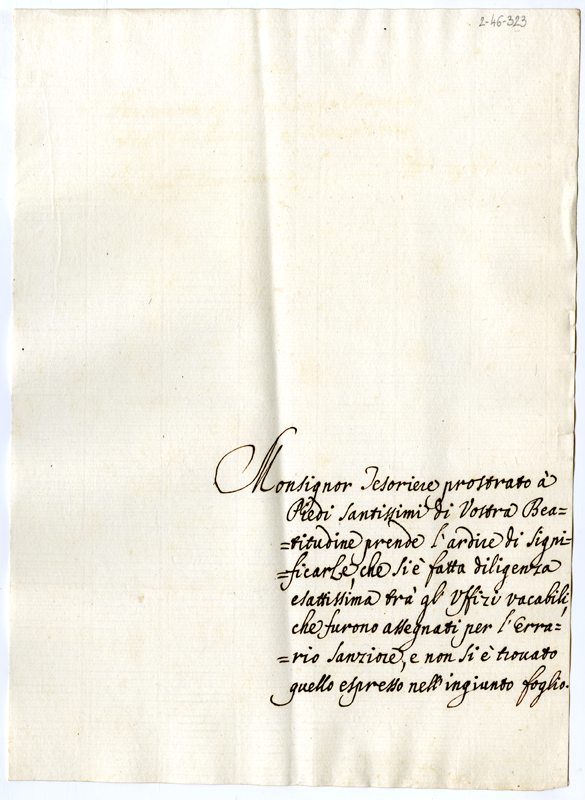 2-46-323
Monsignor Tesoriere prostrato à
Piedi Santissimi di Vostra Bea=
=titudine prende l'ardire di Signi=
=ficarLe, che Si è fatta diligenza
esattissima trà gl' Vffizi vacabili,
che furono assegnati per l'Erra=
=rio Sanziore, e non Si è trovato
quello espresso nell'ingiunto foglio.